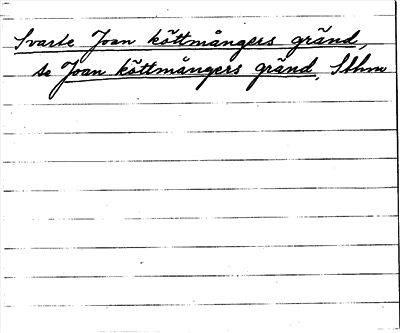 Svarte Joan köttmångers gränd,
se Joan köttmångers gränd, Sthm